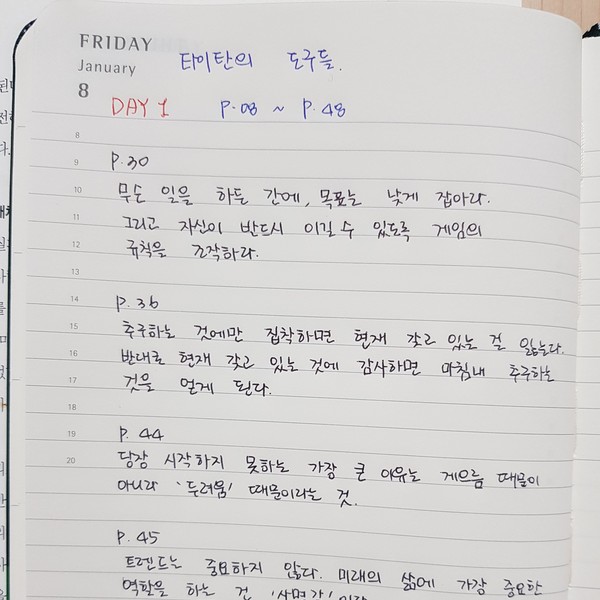 FRIDAY
January
8
타이탄의 도구들.
DAY 1 P.08 ~ P.48
8
9
P.30
10
무슨 일을 하든 간에, 목표는 낮게 잡아라.
11
그리고 자신이 반드시 이길 수 있도록 게임의
12
규칙을 조작하라.
13
14
P.36
15
추구하는 것에만 집착하면 현재 갖고 있는 걸 잃는다.
16
반대로 현재 갖고 있는 것에 감사하면 마침내 추구하는
17
것을 얻게 된다.
18
19
P. 44
20
당장 시작하지 못하는 가장 큰 이유는 게으름 때문이
아니라 '두려움' 때문이라는 것.
P.45
트렌드는 중요하지 않다. 미래의 삶에 가장 중요한
역할을 하는 건 '사명감'이다